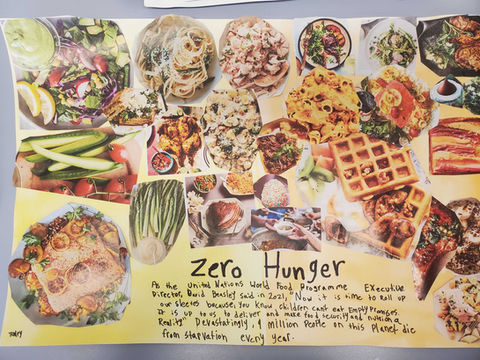 Zero Hunger
As the United Nations World Food Programme Executive
Director, David Beasley said in 2021, "Now it is time to Roll up
our sleeves because, you know children cant eat Empty Promises.
It is up to us to deliver and make food security and nutrition a
Reality" Devastatingly, 9 million People on this Planet die
from starvation every year.